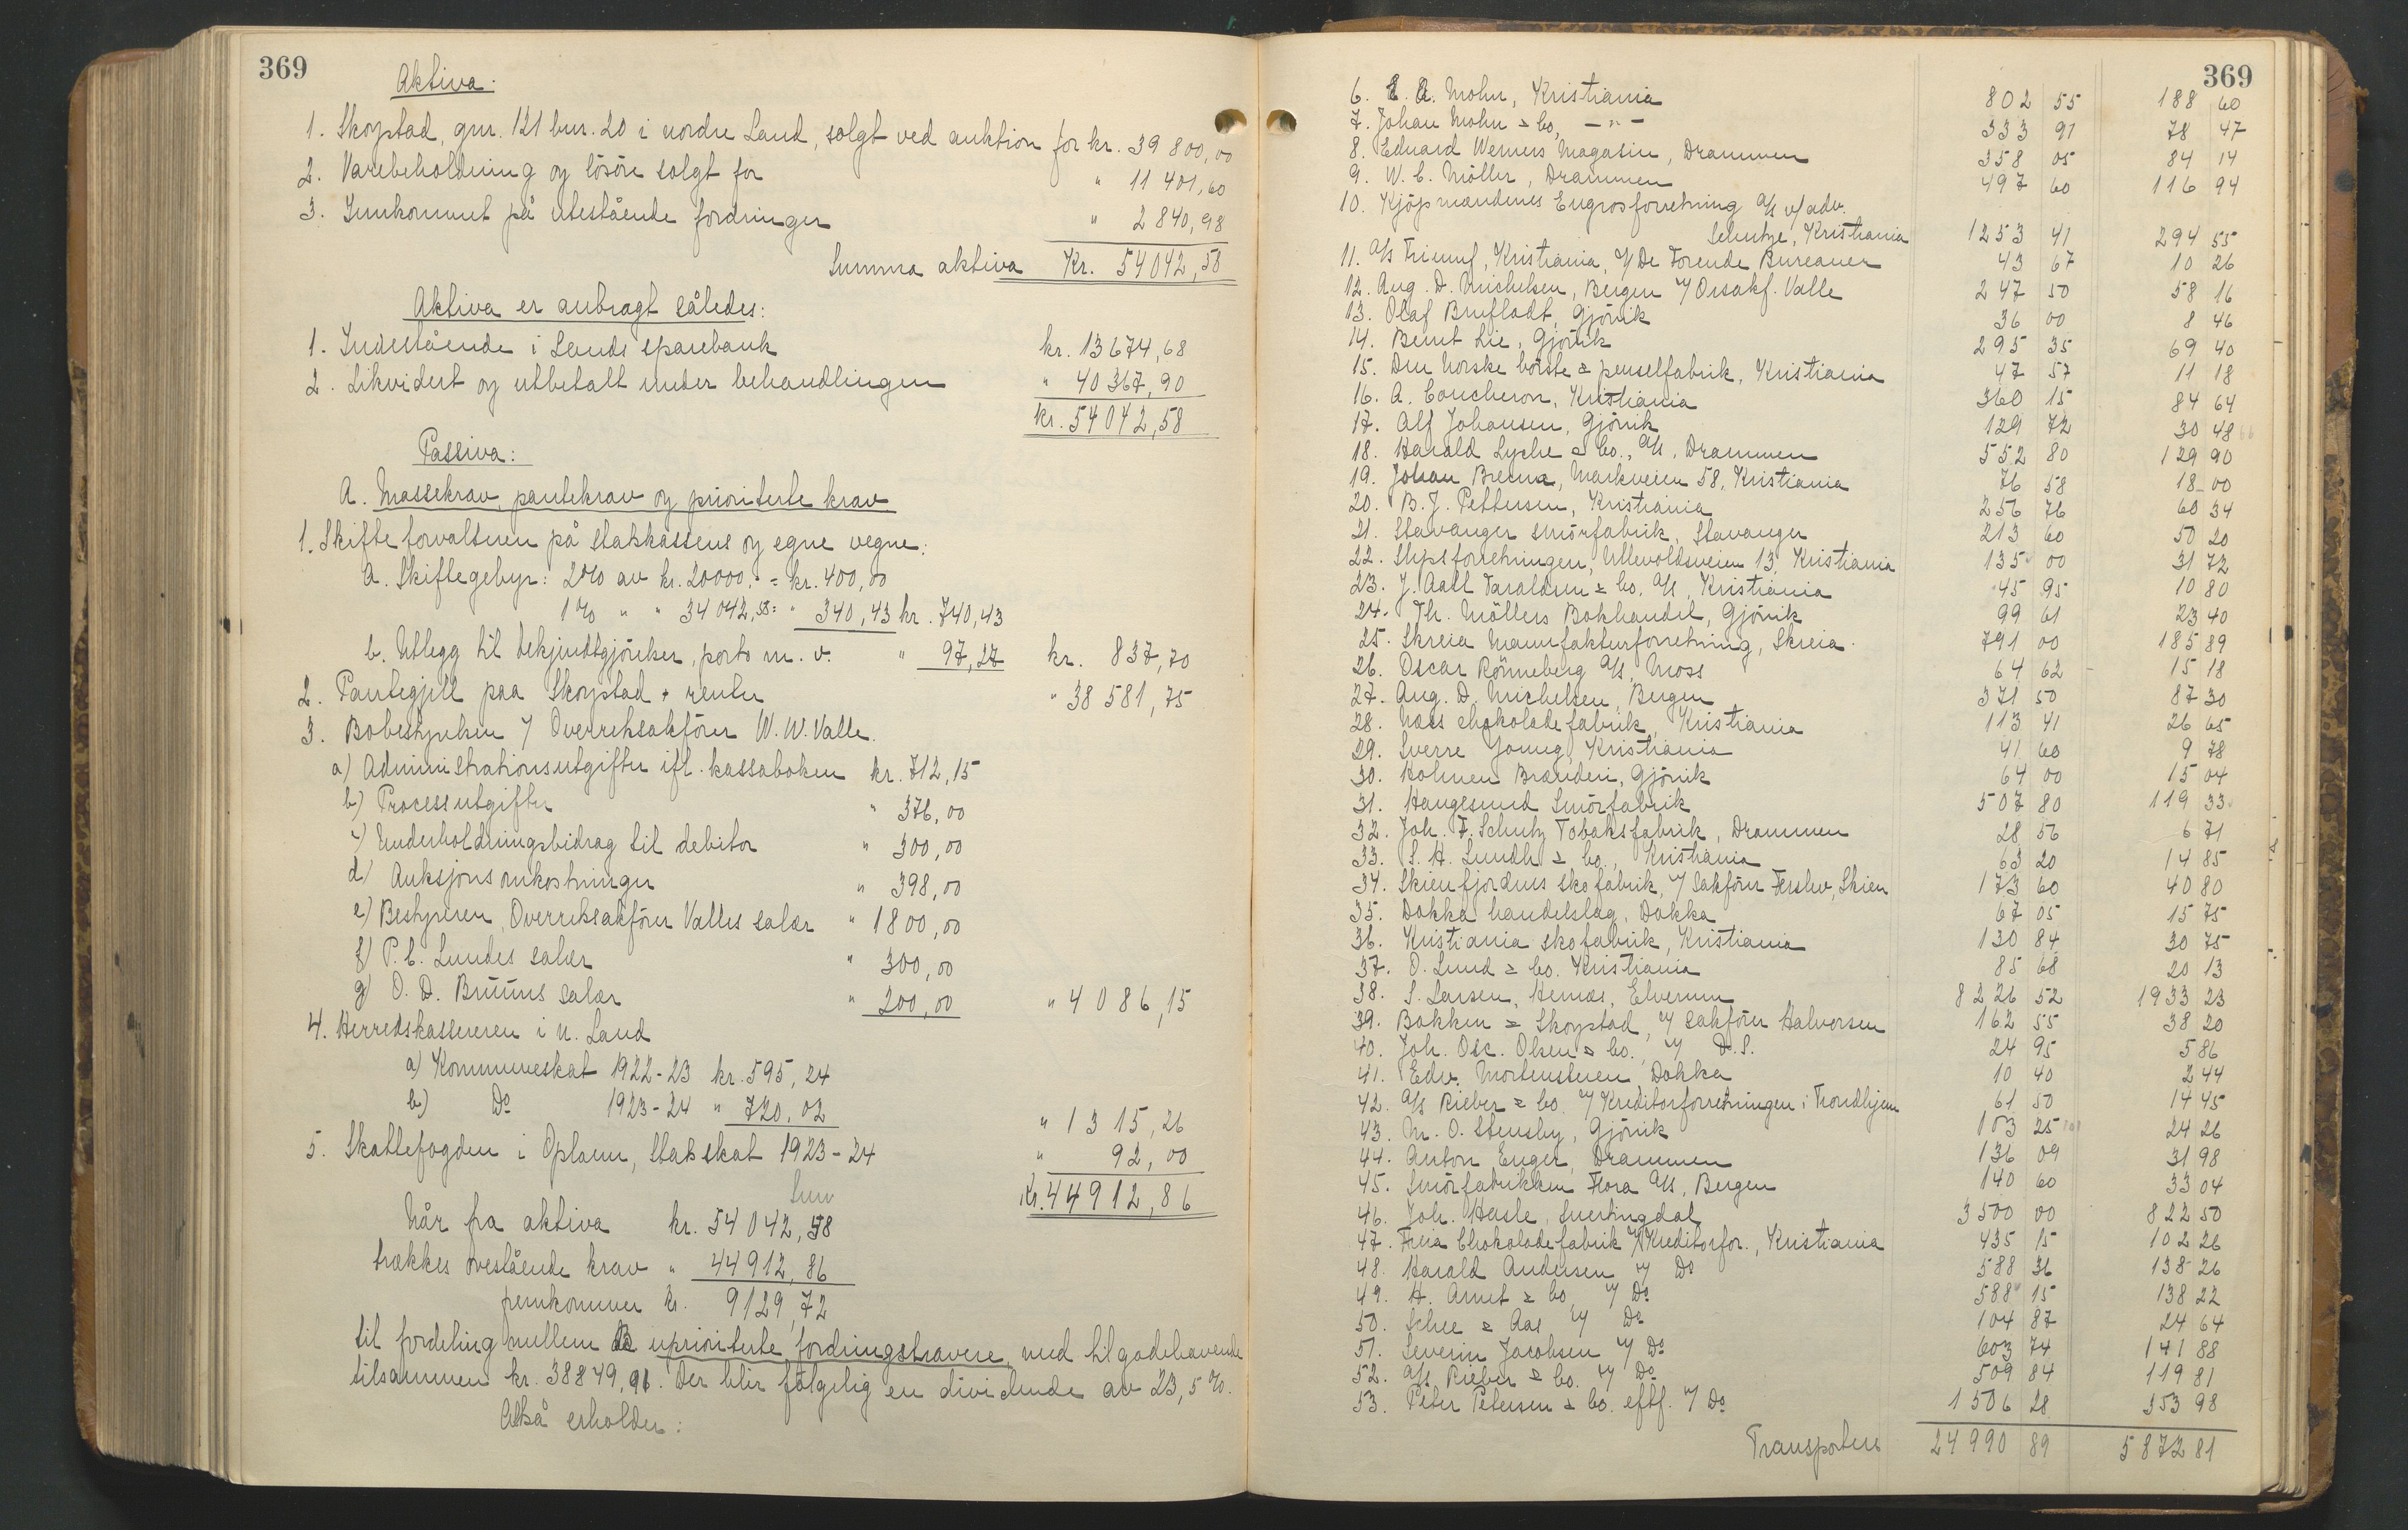 369
Aktiva:
1. Skoystad, gnr. 121 bnr. 20 i nordre Land, solgt ved auktion for kr. 39 800,00
2. Varebeholdning og lösöre solgt for " 11 401,60
3. Innkommet på utestående fordringer " 2 840,98
Summa aktiva Kr. 54042,58
Aktiva er anbragt således:
1. Indestående i Lands sparebank kr. 13674,68
2. Likvidert og utbetalt under behandlingen " 40 367,90
kr. 54042,58
Passiva:
A. Massekrav, pantekrav og prioriterte krav
1. Skifteforvalteren på statskassens og egne vegne:
a. Skiftegebyr: 2% av kr. 20000,- = kr. 400,00
1% " " 34042,58 = " 340,43 kr. 740,43
b. Utlegg til bekjendtgjörelser, porto m. v. " 97,27 kr. 837,70
2. Pantegjell paa Skoystad + renter " 38 581,75
3. Bobestyrelsen v/ Overretssakförer W. W. Valle.
a) Administrationsutgifter ifl. kassaboken kr. 712,15
b) Processutgifter " 376,00
c) Underholdningsbidrag til debitor " 300,00
d) Auksjonsomkostninger " 398,00
e) Bestyreren, Overretssakförer Valles salær " 1800,00
f) P. C. Lundes salær " 300,00
g) O. D. Bruuns salær " 200,00 " 4 086,15
4. Herredskassereren i N. Land
a) Kommuneskat 1922-23 kr. 595,24
b) Do 1923-24 " 720,02 " 1315,26
5. Skattefogden i Oplann, Statsskat 1923-24 " 92,00
Sum Kr. 44912,86
Når fra aktiva kr. 54042,58
trækkes ovestående krav " 44912,86
fremkommer kr. 9129,72
til fordeling mellem B uprioriterte fordringshavere, med tilgodehavende
tilsammen kr. 38849,91. Der blir følgelig en dividende av 23,5%.
Altså erholder:
369
6. A. Mohn, Kristiania 802 55 188 60
7. Johan Mohn & Co, - " - 333 91 78 47
8. Edvard Werners Magasin, Drammen 358 05 84 14
9. W. C. Möller, Drammen 497 60 116 94
10. Kjöpmændenes Engrosforretning A/S v/ adv.
Schutze, Kristiania 1253 41 294 55
11. A/S Triumf, Kristiania, v/ De Forende Bureauer 43 67 10 26
12. Aug. D. Michelsen, Bergen v/ Orsakf. Valle 247 50 58 16
13. Olaf Brufladt, Gjövik 36 00 8 46
14. Bernt Lie, Gjövik 295 35 69 40
15. Den Norske börste & penselfabrik, Kristiania 47 57 11 18
16. A. Coucheron, Kristiania 360 15 84 64
17. Alf Johansen, Gjövik 129 72 30 48
18. Harald Lyche & Co., A/S, Drammen 552 80 129 90
19. Johan Brecna, Markveien 58, Kristiania 76 58 18 00
20. B. J. Pettersen, Kristiania 256 76 60 34
21. Stavanger smörfabrik, Stavanger 213 60 50 20
22. Slipsforretningen, Ullevoldsveien 13, Kristiania 135 00 31 72
23. J. Aall Taraldsen & Co. A/S, Kristiania 45 95 10 80
24. Th. Möllers Bokhandel, Gjövik 99 61 23 40
25. Skreia Manufakturforretning, Skreia. 791 00 185 89
26. Oscar Rönneberg A/S, Moss 64 62 15 18
27. Aug. D. Michelsen, Bergen 371 50 87 30
28. Næs chokoladefabrik, Kristiania 113 41 26 65
29. Sverre Young, Kristiania 41 60 9 78
30. Holmen Brænderi, Gjövik 64 00 15 04
31. Haugesund Smörfabrik 507 80 119 33
32. Joh. F. Schutz Tobaksfabrik, Drammen 28 56 6 71
33. S. H. Lundh & Co., Kristiania 63 20 14 85
34. Skienfjordens skofabrik, v/ sakförer Ferslev, Skien 173 60 40 80
35. Dokka handelslag, Dokka 67 05 15 75
36. Kristiania skofabrik, Kristiania 130 84 30 75
37. O. Lund & Co. Kristiania 85 68 20 13
38. S. Larsen, Hernæs, Elverum 8226 52 1933 23
39. Bakken & Skoystad, v/ sakförer Halvorsen 162 55 38 20
40. Joh. Osc. Olsen & Co., v/ D. S. 24 95 5 86
41. Edv. Mortensteuen, Dokka 10 40 2 44
42. A/S Rieber & Co. v/ Kreditorforretningen i Trondhjem 61 50 14 45
43. M. O. Stensby, Gjövik 103 25 24 26
44. Anton Enger, Drammen 136 09 31 98
45. Smörfabrikken Flora A/S, Bergen 140 60 33 04
46. Joh. Hasle, Snertingdal 3500 00 822 50
47. Freia Chokoladefabrik v/ Kreditorfor., Kristiania 435 15 102 26
48. Harald Andersen v/ Do 588 36 138 26
49. H. Arnet & Co, v/ Do 588 15 138 22
50. Schee & Aas v/ Do 104 87 24 64
51. Severin Jacobsen v/ Do 603 74 141 88
52. A/S Rieber & Co. v/ Do 509 84 119 81
53. Peter Petersen & Co. eftf. v/ Do 1506 28 353 98
Transporteres 24990 89 5872 81